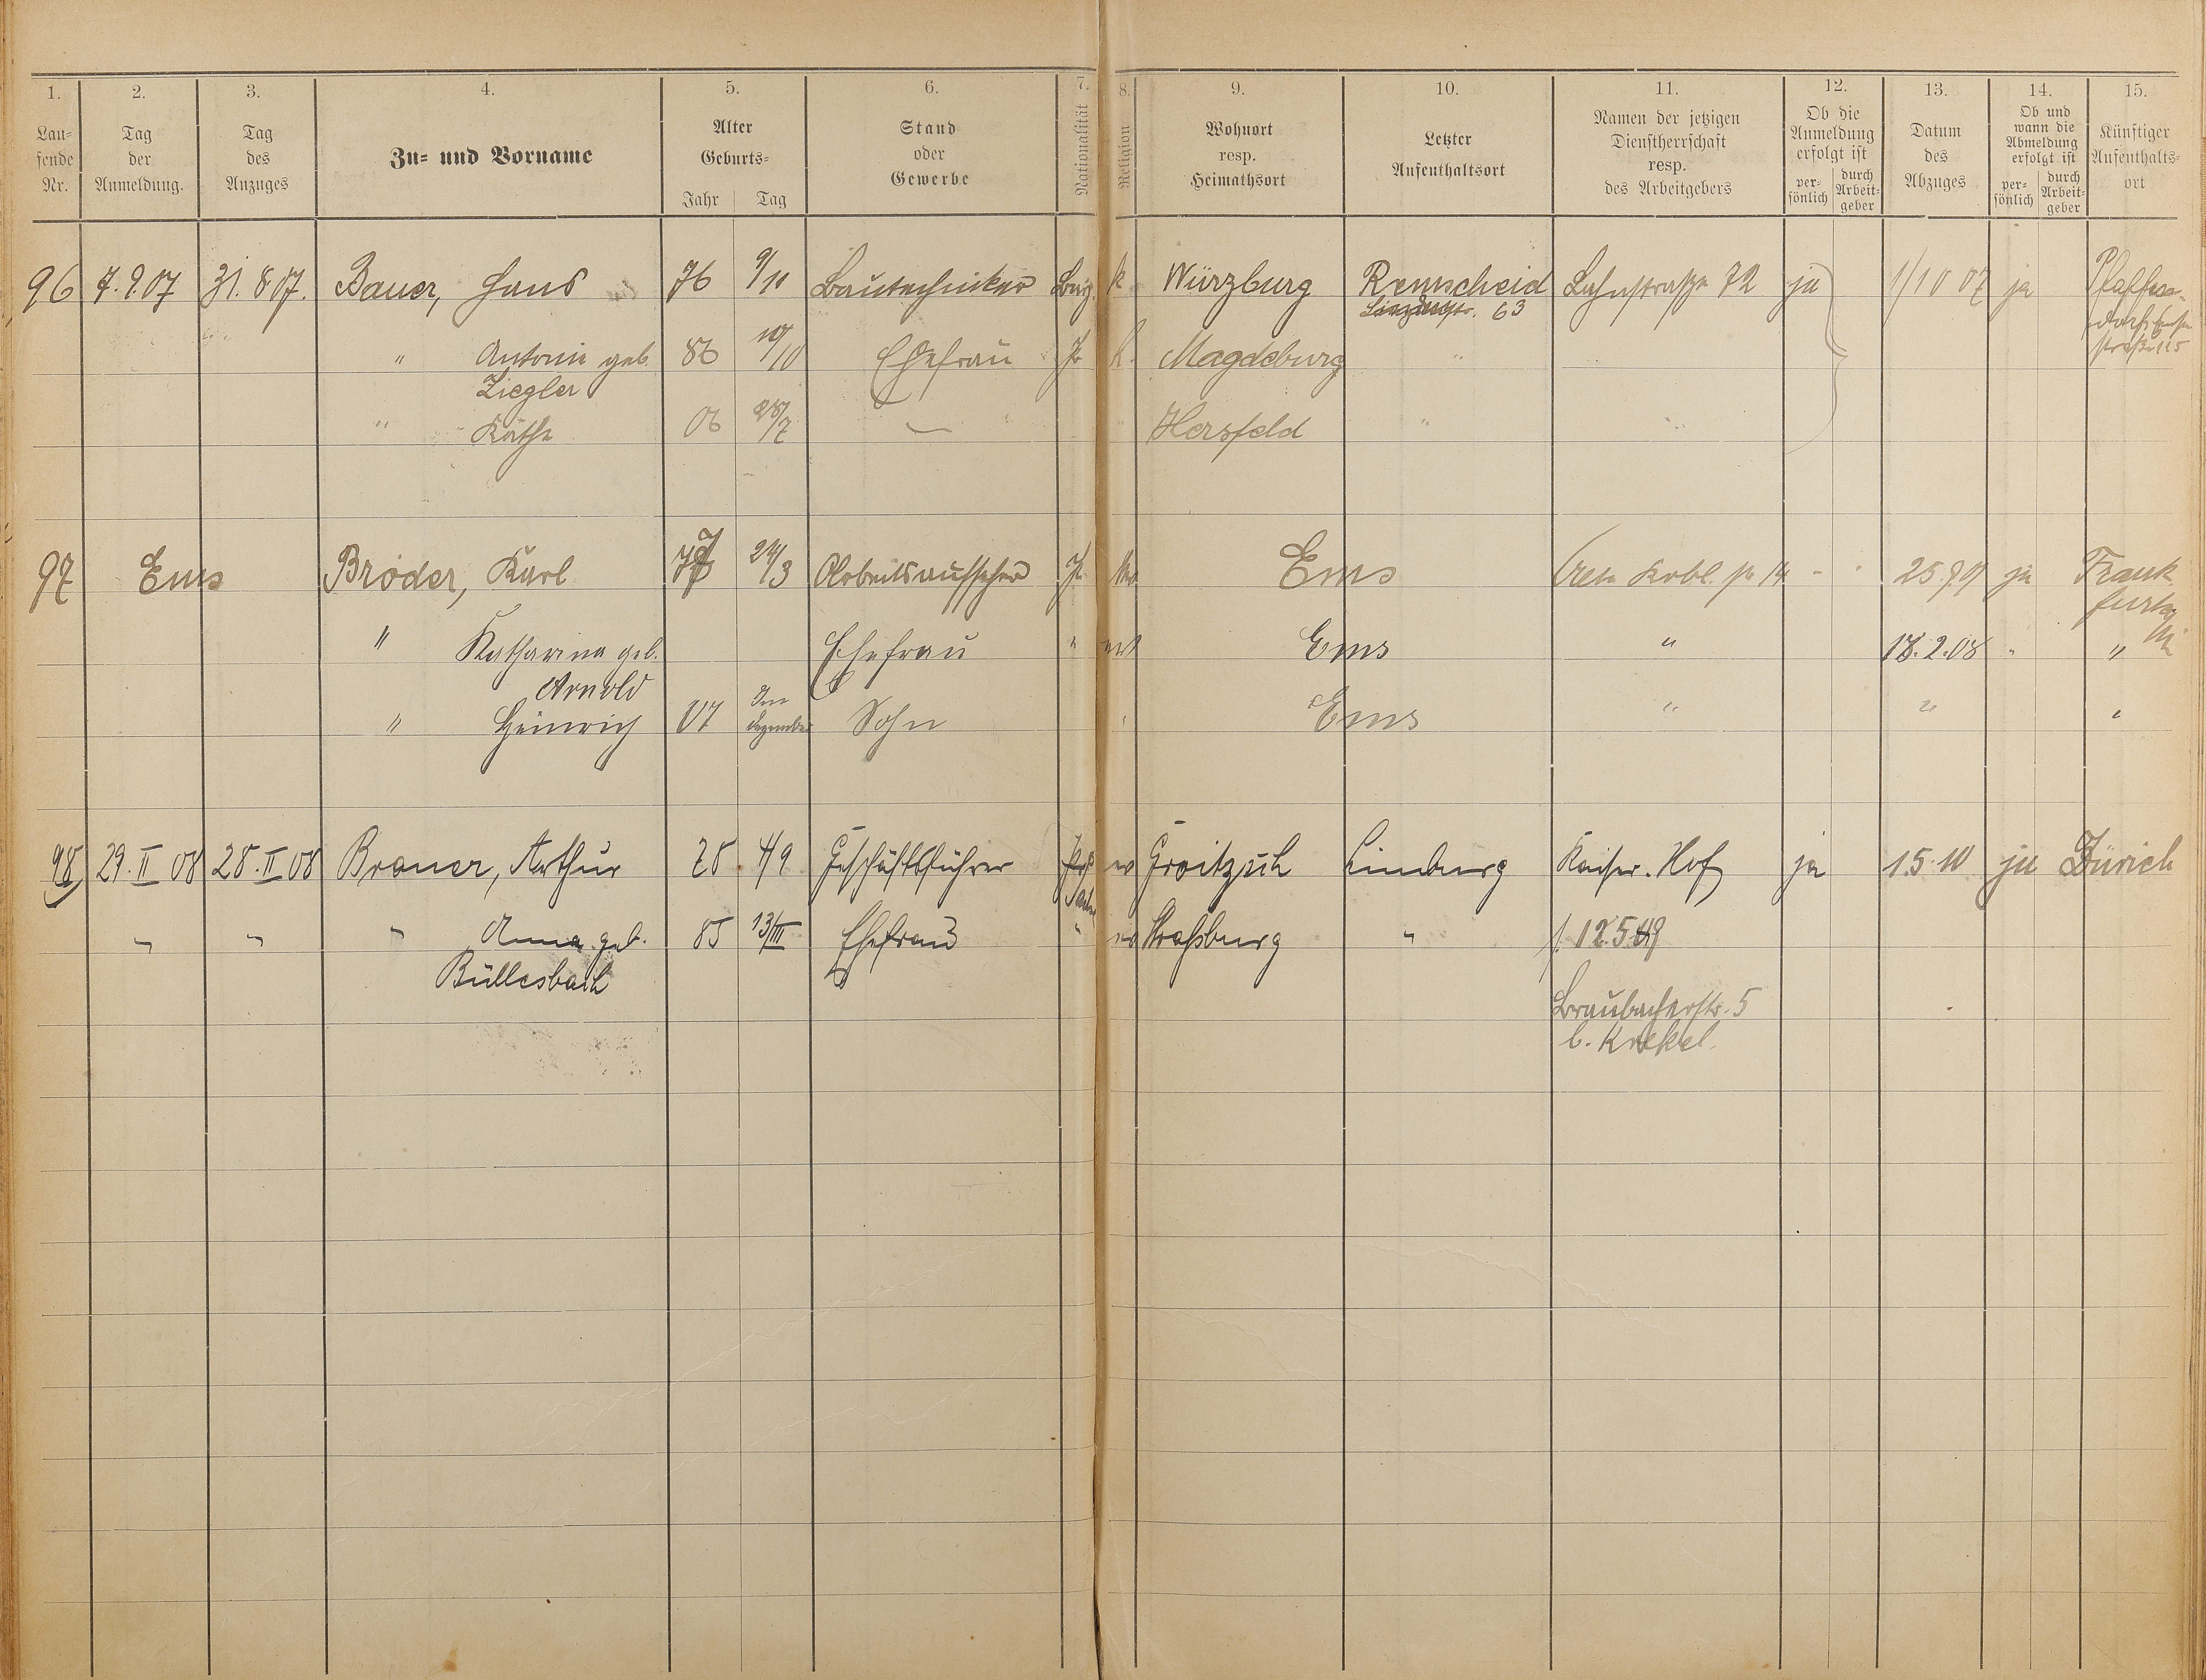 1. 2. 3. 4. 5. 6. 7. 8. 9. 10. 11. 12. 13. 14. 15.
Lau-
fende
Nr.
Tag
der
Anmeldung.
Tag
des
Anzuges
Zu- und Vorname
Alter
Geburts-
Jahr Tag
Stand
oder
Gewerbe
Nationalität
Religion
Wohnort
resp.
Heimathsort
Letzter
Aufenthaltsort
Namen der jetzigen
Dienstherrschaft
resp.
des Arbeitgebers
Ob die
Anmeldung
erfolgt ist
per-
sönlich
durch
Arbeit-
geber
Datum
des
Abzuges
Ob und
wann die
Abmeldung
erfolgt ist
per-
sönlich
durch
Arbeit-
geber
Künftiger
Aufenthalts-
ort
96 7.9.07 31.8.07. Bauer, Hans 76 9/11 Bautechniker k Würzburg Remscheid Lahnstraße 72 ja 1/10 07 ja Pfaffen-
63 dorf
straße 115
" Antonie geb. 86 10/10 Ehefrau Pr k. Magdeburg "
Ziegler
" Käthe 06 28/7 — Hersfeld " "
97 Ems Bröder, Karl 24/3 Arbeitsaufseher Pr Ems Kobl. 14 25.9.07 ja Frank
furt
" Katharina geb. Ehefrau " Ems " 18.2.08 " "
Arnold
" Heinrich 07 Im
Dezember Sohn " Ems " " "
98 29.II 08 28.II 08 Brauer, Arthur 78 4/9 Geschäftsführer ev Groitzsch Limburg Kaiser. Hof ja 1.5.10 ja Zürich
" " " Anna geb. 85 13/III Ehefrau " ev Straßburg " 12.5.09
Büllesbach
Braubacherstr. 5
b. Krekel.